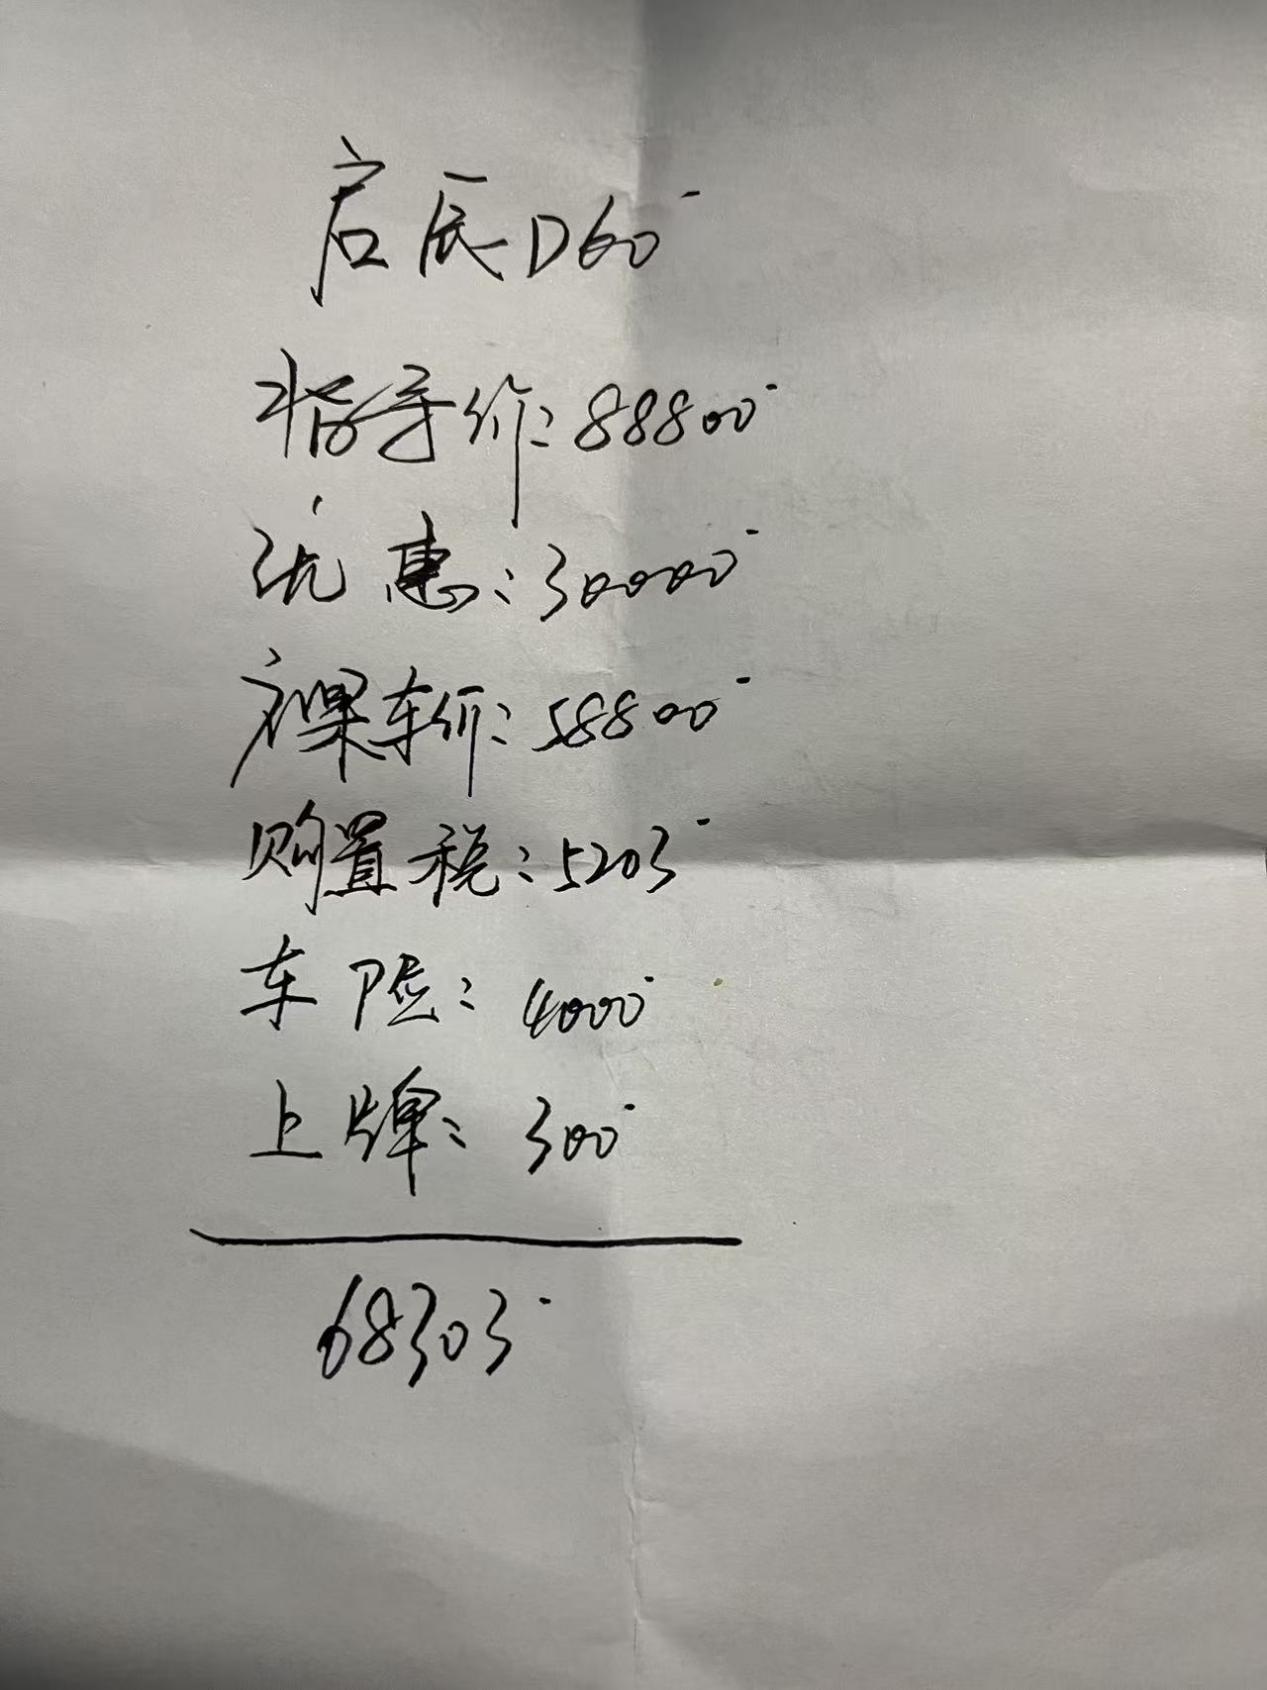 启辰D60
指导价：88800
优惠：30000
裸车价：58800
购置税：5203
车险：4000
上牌：300
68303